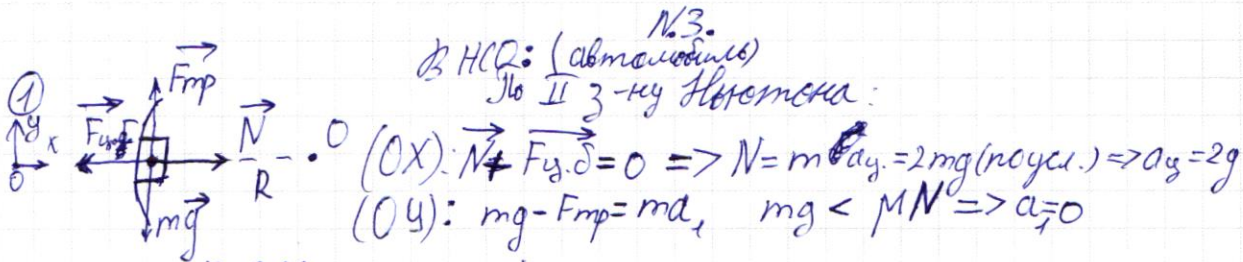 N.3.
В НСО: (автомобиль)
По II з-ну Ньютона:
① y x 0 Fтр Fц.б N R O mg
(OX): N + Fц.б = 0 => N = m aц. = 2mg (по усл.) => aц = 2g
(OY): mg - Fтр = ma₁ mg < μN => a₁=0